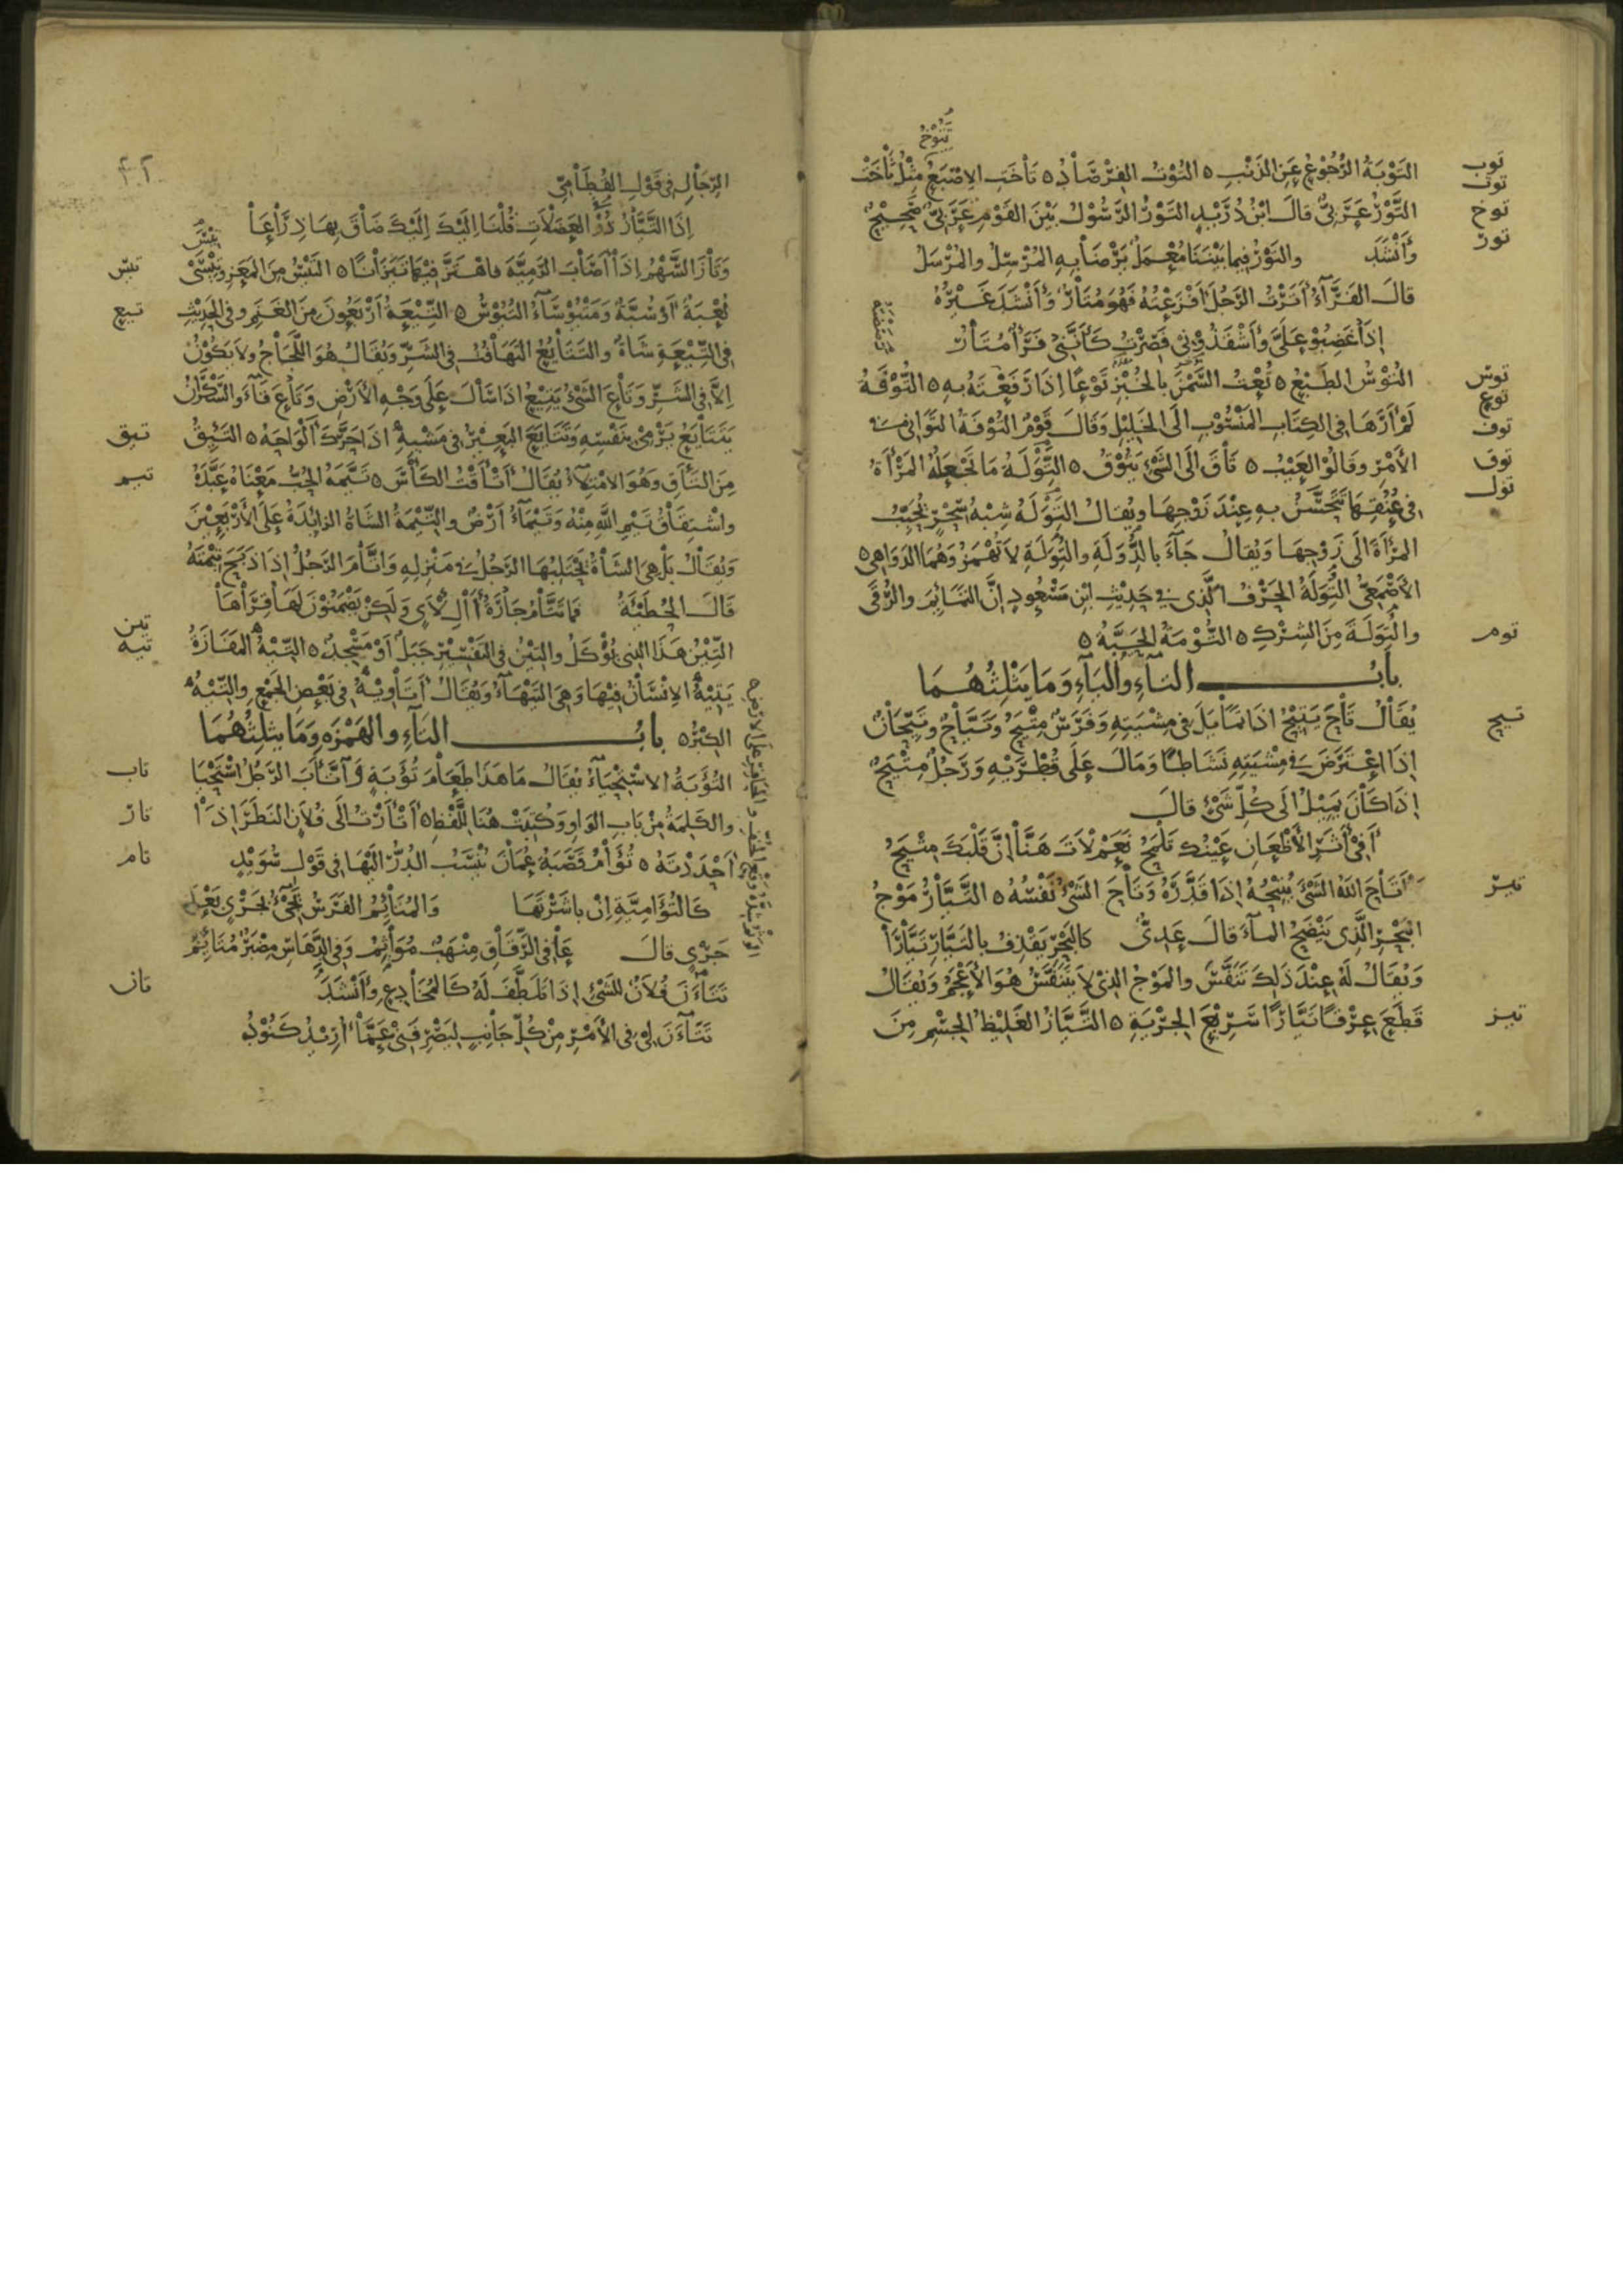 تَنُوْخُ
توب
التَّوْبَةُ الرُّجُوْعُ عَنِ الذَنْبِ ه التُوْتُ الفِرْصَادُ ه تَاْخَتِ الإصْبَعُ مِثْلُ ثَاْخَتْ
توت
توخ
التَّوْرُ عَرَبِيٌّ قالَ ابْنُ دُرَيْدٍ التَوْرُ الرَسُوْلُ بَيْنَ القَوْمِ عَرَبِيٌّ صَحِيْحٌ
تور
وَأَنْشَدَ والتَوْرُ فِيما بَيْنَنَا مُعْمَلٌ يَرْضَاْ بِهِ المُرْسِلُ والمُرْسَلُ
قالَ الفَرَّآءُ أَتَرْتُ الرَجُلَ أَفْزَعْتُهُ فَهُوَ مُتَاْرٌ وَأَنْشَدَ غَيْرُهُ
إذَاْ غَضِبُوْ عَلَيَّ وَأَشْقَذُوْنِي فَصِرْتُ كَأَنَّنِي فَرَأٌ مُتَاْرُ
توس
التُوْسُ الطَبْعُ ه تُعْتُ السَّمْنَ بالخُبْزِ تَوْعًا إذَا رَفَعْتَهُ بِهِ ه التُّوْفَةُ
توع
توف
لَمْ أَرَهَا فِي الكِتَابِ المَنْسُوْبِ إلَى الخَلِيْلِ وَقَالَ قَوْمٌ التُوْفَةُ التَوَانِي فِي
توق
الأَمْرِ وَقَالُوْ العَيْبُ ه تَاْقَ إلَى الشَيْءِ يَتُوْقُ ه التِّوَلَةُ مَا تَجْعَلُهُ المَرْأَةُ
تول
فِي عُنُقِهَا تَتَحَسَّنُ بِهِ عِنْدَ زَوْجِهَا ويُقالُ التِوَلَةُ شِبْهُ سِحْرٍ تُحَبِّبُ
المَرْأَةَ إلَى زَوْجِهَا وَيُقالُ جَآءَ بِالدُّوَلَةِ والتُوَلَةِ لاَ تُهْمَزُ وَهُمَا الدَوَاهِي ه
الأَصْمَعِيُّ التِوَلَةُ الحَرْفُ الَّذِي فِي حَدِيْثِ ابْنِ مَسْعُودٍ إنَّ التَمَائِمَ والرُقَى
توم
والتِوَلَةَ مِنَ الشِرْكِ ه التُّوْمَةُ الحَبَّةُ ه
بابُ التاءِ واليَاءِ وَمَا يَثْلِثُهُمَا
تيح
يُقَاْلُ تَاْحَ يَتِيْحُ إذَا تمَايَلَ فِي مِشْيَتِهِ وَفَرَسٌ مِتْيَحٌ وَتَيَّاْحٌ وَتَيِّحَاْنٌ
إذَا اعْتَرَضَ فِي مِشْيَتِهِ نَشَاطًا وَمَالَ عَلَى قُطْرَيْهِ وَرَجُلٌ مِتْيَحٌ
إذَا كَاْنَ يَمِيْلُ إلَى كُلِّ شَيْءٍ قالَ
أَفِيْ أَثَرِ الأَظْعَانِ عَيْنُكَ تَلْمَحُ نَعَمْ لاَتَ هَنَّاْ إنَّ قَلْبَكَ مِتْيَحُ
تير
أَتَاْحَ اللهُ الشَيْءَ يُتِيْحُهُ إذَا قَدَّرَهُ وَتَاْحَ الشَيْءُ نَفْسُهُ ه التَّيَّاْرُ مَوْجُ
البَحْرِ الَّذِي يَنْضَحُ المآءَ قالَ عَدِيٌّ كالبَحْرِ يَقْذِفُ بالتَيَّارِ تَيَّاْرَا
وَيُقَالُ لَهُ عِنْدَ ذَلِكَ تَنَفَّسَ والمَوْجُ الذِيْ لاَ يَتَنَفَّسُ هُوَ الأَعْجَمُ وَيُقَالُ
تيز
قَطَعَ عِرْقًا تَيَّارًا سَرِيْعَ الجَرْيَةِ ه التَّيَّازُ الغَلِيْظُ الجِسْمِ مِنَ
الرِجَاْلِ فِي قَوْلِ القُطَامِيِّ
إذَا التَّيَّازُ ذُوْ العَضَلاَتِ قُلْنَا إلَيْكَ إلَيْكَ ضَاْقَ بِهَا ذِرَاْعَاْ
تيس
وَتَاْزَ السَّهْمُ إذَاْ أَصَابَ الرَمِيَّةَ فاهْتَزَّ فِيْهَا تَيَزَاْنًا ه التَيْسُ مِنَ المَعْزِ
تيع
لُعْبَةٌ أَوْ سُبَّةٌ وَمَتْيُوْسَآءُ التُيُوْسُ ه التِّيْعَةُ أَرْبَعُونَ مِنَ الغَنَمِ وفي الحَدِيْثِ
فِي التِّيْعَةِ شَاةٌ والتَتَايُعُ التَهَافُتُ فِي الشَرِّ وَيُقَالُ هُوَ اللَّجَاْجُ ولاَ يَكُوْنُ
إلاَّ فِي الشَرِّ وَتَاْعَ الشَيْءُ يَتِيْعُ إذَا سَالَ عَلَى وَجْهِ الأَرْضِ وَتَاْعَ قَآءَ والسَّكْرَانُ
تيق
يَتَتَايَعُ يَرْمِيْ بِنَفْسِهِ وَتَتَايَعَ البَعِيْرُ فِي مَشْيِهِ إذَا حَرَّكَ أَلْوَاحَهُ ه التَيِّقُ
تيم
مِنَ التَأَقِ وَهُوَ الامْتِلآءُ يُقَالُ أَتْأَقْتُ الكَأْسَ ه تَيَّمَهُ الحُبُّ مَعْنَاهُ عَبَّدَهُ
واشْتِقَاقُ تَيْمِ اللهِ مِنْهُ وَتَيْمَاءُ أَرْضٌ والتِّيْمَةُ الشَاةُ الزائِدَةُ عَلَى الأَرْبَعِيْنَ
وَيُقَاْلُ بَلْ هِيَ الشَاْةُ يَحْتَلِبُهَا الرَجُلُ فِي مَنْزِلِهِ وَاتَّاْمَ الرَجُلُ إذَا ذَبَحَ تِيْمَتَهُ
قَالَ الحُطَيْئَةُ فَمَا تَتَّاْمُ جَارَةُ آلِ لأْيٍ وَلَكِنْ يَضْمَنُوْنَ لَهَا قِرَاْهَاْ
تين
التِّيْنُ هَذَا الذِي يُؤْكَلُ والتِيْنُ فِي التَفْسِيْرِ جَبَلٌ أَوْ مَسْجِدٌ ه التِّيْهُ المَفَازَةُ
تيه
يَتِيْهُ الإنْسَاْنُ فِيْهَا وَهِيَ التَيْهَاْءُ وَيُقَالُ أَتَاْوِيْهُ فِي بَعْضِ الجَمْعِ والتِّيْهُ
الكِبْرُ ه بابُ التَاءِ والهَمْزَهِ وَمَا يثلِثُهُمَا
تاب
التُؤَبَةُ الاسْتِحْيَآءُ يُقَالُ مَا هَذَا طَعَاْمَ تُؤَبَةٍ وَاتَّأَبَ الرَجُلُ اسْتَحْيَا
تار
والكَلِمَةُ مِنْ بَابِ الوَاوِ وَكُتِبَتْ هُنَا لِلَّفْظِ ه أَتْأَرْتُ إلَى فُلاَنٍ النَظَرَ إذَا
تام
أَحْدَدْتَهُ ه تُؤَاْمُ قَصَبَةُ عُمَاْنَ يُنْسَبُ الدُرُّ إلَيْهَا فِي قَوْلِ سُوَيْدٍ
كَالتُؤَامِيَّةِ إنْ باشَرْتَهَا وَالمُتَائِمُ الفَرَسُ تَجِيْءُ بِجَرْيٍ بَعْدَ
جَرْيٍ قالَ عَاْفِي الرَّقَاْقِ مِنْهَبٌ مُوَاْئِمُ وَفِي الدَّهَاسِ مِضْبَرٌ مُتَائِمُ
تان
تَتَاءَنَ فُلاَنٌ للشَيْءِ إذَا تَلَطَّفَ لَهُ كَالمُخَاْدِعِ وَأَنْشَدَ
تَتَاءَنَ لِيْ فِي الأَمْرِ مِنْ كُلِّ جَانِبٍ لِيَصْرِفَنِيْ عَمَّا أُرِيْدُ كَنُوْدُ